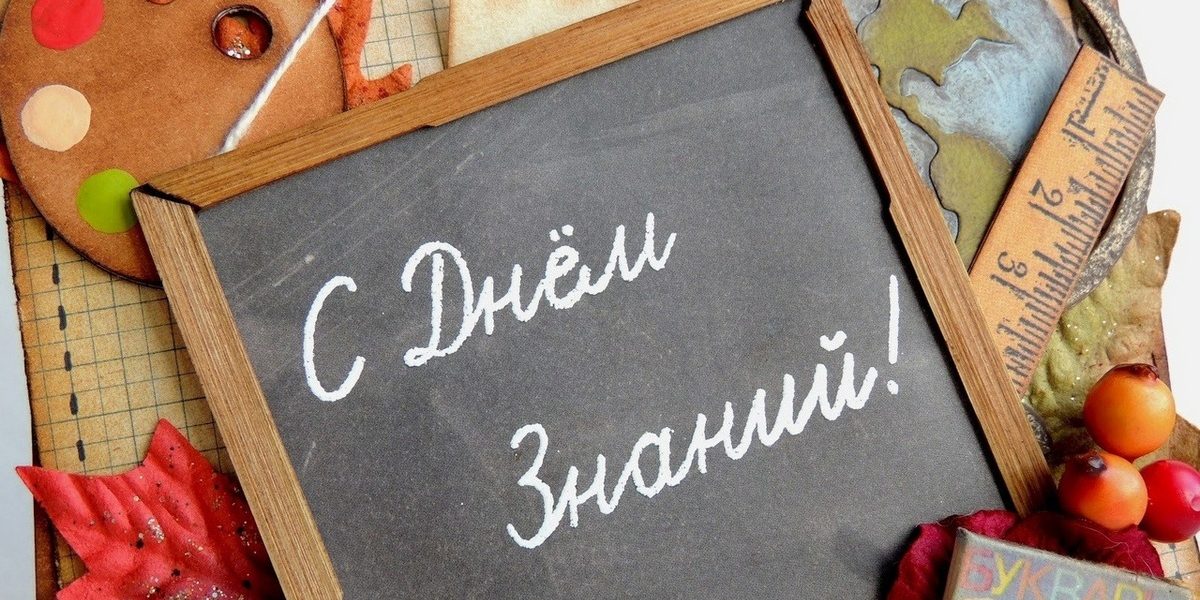 С Днём
Знаний!
2
3
БУКВАРЬ